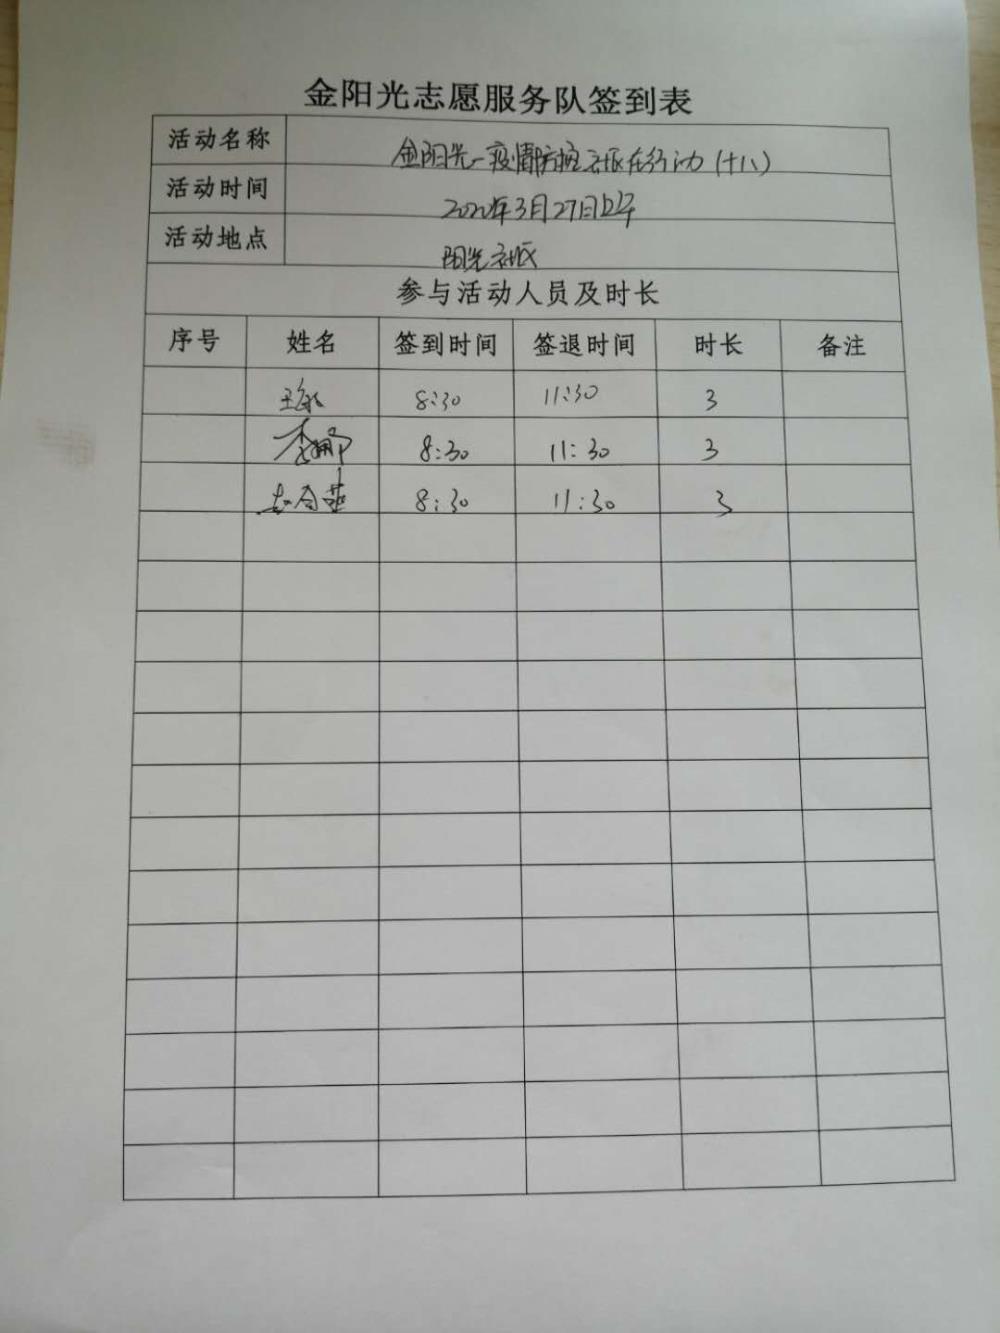 金阳光志愿服务队签到表
活动名称 金阳光-疫情防控社区在行动(十八)
活动时间 2020年3月27日上午
活动地点 阳光社区
参与活动人员及时长
序号 姓名 签到时间 签退时间 时长 备注
王敏 8:30 11:30 3
李娜 8:30 11:30 3
8:30 11:30 3